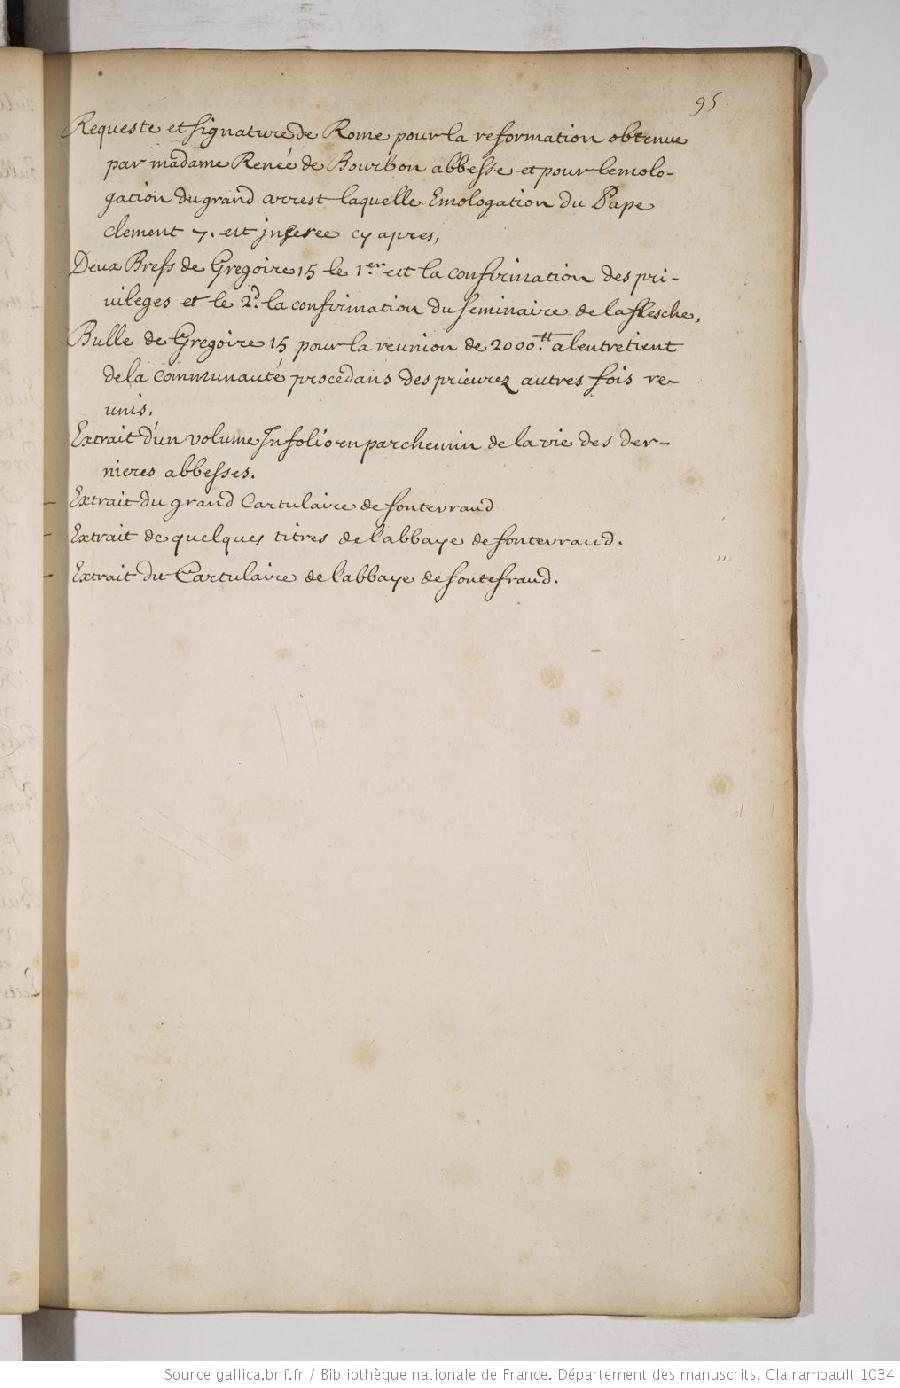 95
Requeste et signature de Rome pour la reformation obtenue
par madame Renée de Bourbon abbesse et pour lemolo-
gation du grand arrest laquelle Emologation du Pape
clement 7. est inserée cy apres,
Deux Brefs de Gregoire 15 le 1er est la confirmation des pri-
vileges et le 2d. la confirmation du seminaire de la flesche,
Bulle de Gregoire 15 pour la reunion de 2000.tt a lentretient
de la communauté procedans des prieurez autres fois re-
unis.
Extrait d'un volume Infolio en parchemin de la vie des der-
nieres abbesses.
- Extrait du grand Cartulaire de fontevraud
- Extrait de quelques titres de l'abbaye de fontevraud.
- Extrait du Cartulaire de l'abbaye de fontefraud.
Source gallica.bnf.fr / Bibliothèque nationale de France. Département des manuscrits. Clairambault 1034